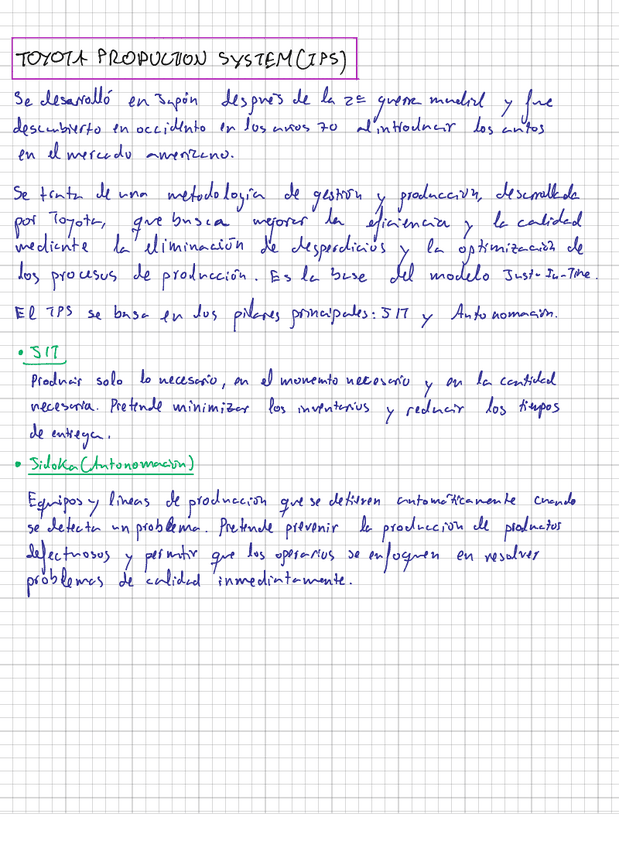 TOYOTA PRODUCTION SYSTEM (TPS)
Se desarrolló en Japón después de la 2ª guerra mundial y fue
descubierto en occidente en los años 70 al introducir los autos
en el mercado americano.
Se trata de una metodología de gestión y producción, desarrollada
por Toyota, que busca mejorar la eficiencia y la calidad
mediante la eliminación de desperdicios y la optimización de
los procesos de producción. Es la base del modelo Just-In-Time.
El TPS se basa en dos pilares principales: JIT y Autonomación.
• JIT
Producir solo lo necesario, en el momento necesario y en la cantidad
necesaria. Pretende minimizar los inventarios y reducir los tiempos
de entrega.
• Jidoka (Autonomación)
Equipos y líneas de producción que se detienen automáticamente cuando
se detecta un problema. Pretende prevenir la producción de productos
defectuosos y permitir que los operarios se enfoquen en resolver
problemas de calidad inmediatamente.